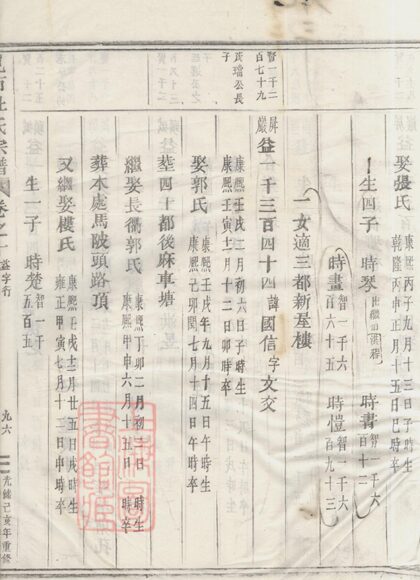 娶張氏 康熙丙申九月十三日子時生 乾隆丙申七月十五日巳時卒
生四子 時琴 出繼 時書 智一千六百十二
時畫 智一千六百六十五 時愷 智一千六百九十三
一女適三都新屋樓
賢一千二百七十九 氏璫公長子
屏巖 益一千三百四十四 諱國信 字文交
康熙壬戌二月初六日子時生 康熙壬寅十二月十二日卯時卒
娶郭氏 康熙壬戌年九月十五日午時生 康熙己卯閏七月十四日午時卒
塟四十都後麻車塘
繼娶長衢郭氏 康熙丁卯二月初三日時生 康熙甲申六月十三日時卒
葬本處馬陂頭路頂
又繼娶樓氏 康熙壬戌十二月廿五日戌時生 雍正甲寅七月十二日申時卒
生一子 時楚 智一千五百五
杜氏宗譜 卷之一 益字行 九六 光緒己亥年重修